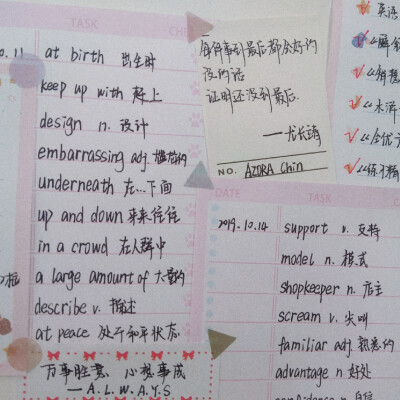 TASK
at birth 出生时
keep up with 赶上
design n. 设计
embarrassing adj. 尴尬的
underneath 在...下面
up and down 来来往往
in a crowd 在人群中
a large amount of 大量的
describe v. 描述
at peace 处于和平状态
万事胜意、心想事成
—A.L.W.A.Y.S
每件事到最后都会好的
没的话
证明还没到最后.
——尤长靖
NO. AZORA Chin
英语
DATE TASK
2019.10.14 support v. 支持
model n. 模式
shopkeeper n. 店主
scream v. 尖叫
familiar adj. 熟悉的
advantage n 好处